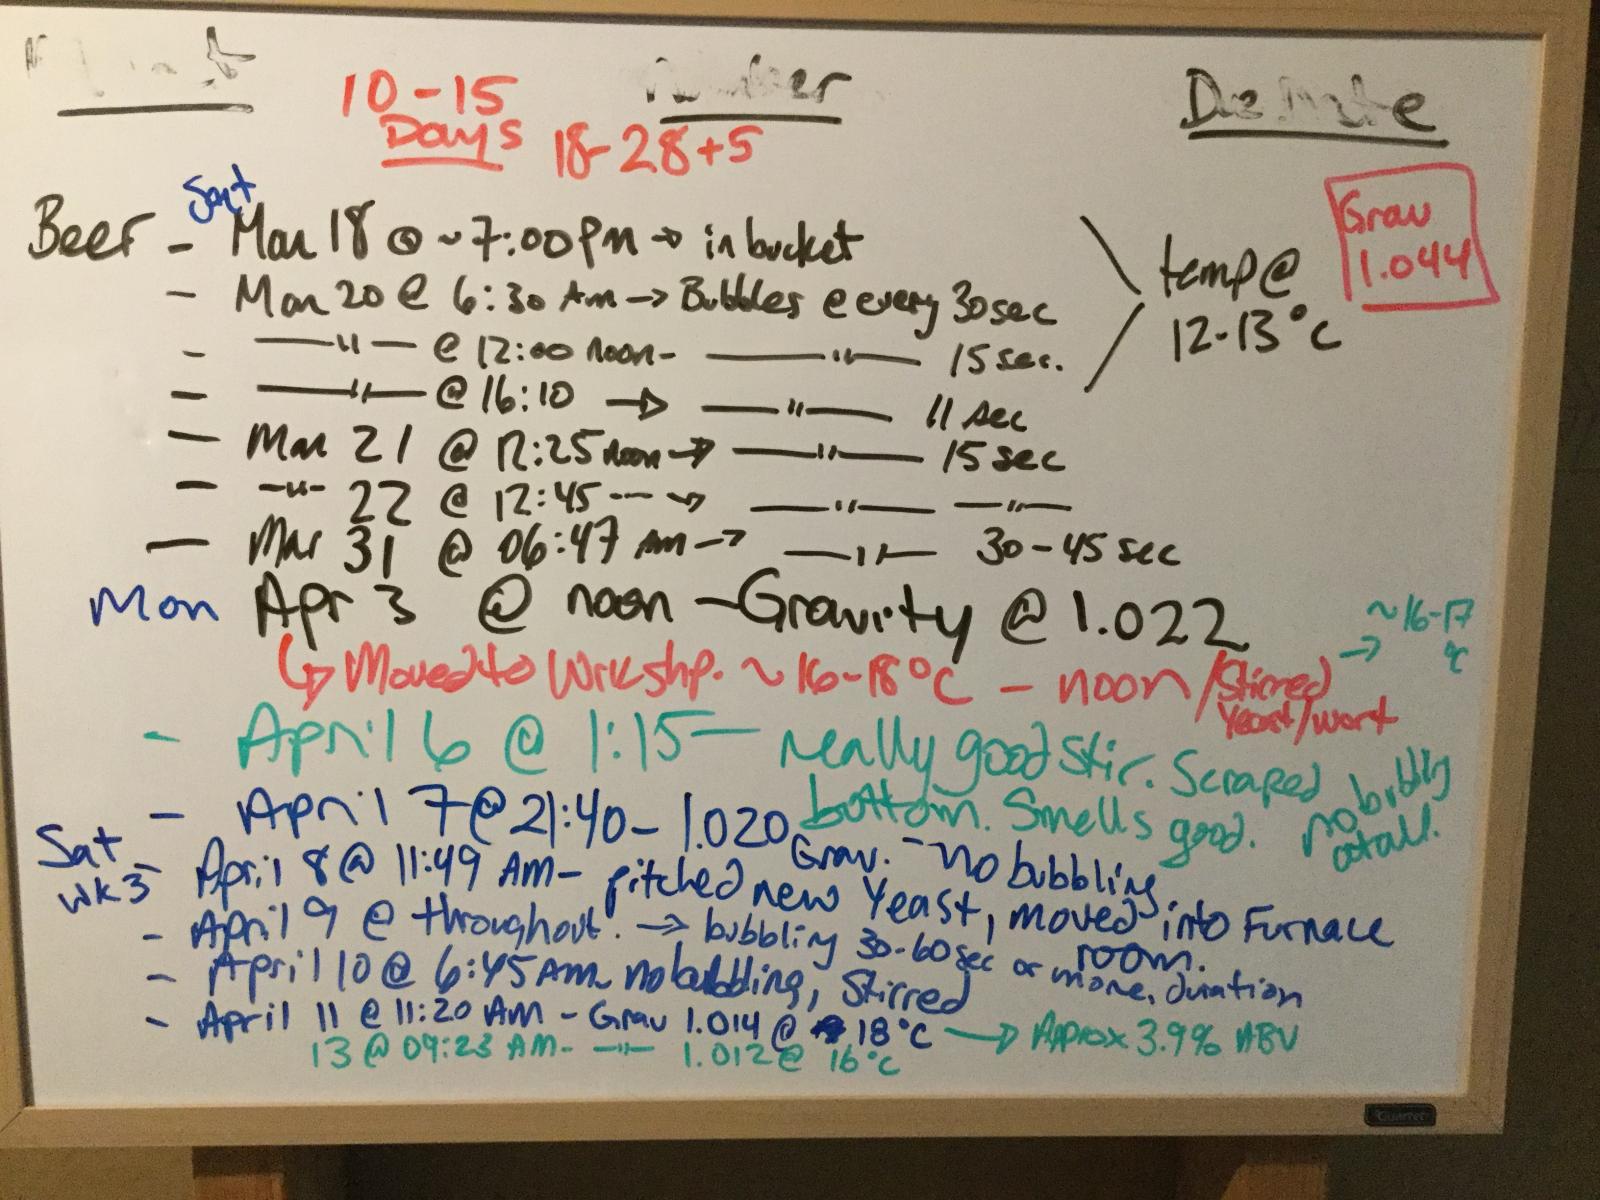 10-15
Days
18-28+5
Grav
1.044
Beer - Sat Mar 18 @ ~7:00pm → in bucket
temp@
12-13°C
- Mar 20 @ 6:30 Am → Bubbles @ every 30sec
- —— " —— @ 12:00 noon - —— " —— 15 sec.
- —— " —— @ 16:10 → —— " —— 11 sec
- Mar 21 @ 12:25 noon → —— " —— 15 sec
- --"-- 22 @ 12:45 --- → —— " —— —— " ——
- Mar 31 @ 06:47 Am → —— " —— 30-45 sec
Mon Apr 3 @ noon - Gravity @ 1.022
↳ Moved to Wrkshp. ~16-18°C - noon/Stirred Yeast/wort → ~16-17°C
- April 6 @ 1:15 - really good stir. Scraped
bottom. Smells good. no bubbly at all.
- April 7 @ 21:40 - 1.020 Grav. - no bubbling
Sat wk 3 - April 8 @ 11:49 AM - pitched new Yeast, moved into Furnace room.
- April 9 @ throughout. → bubbling 30-60sec or more, duration
- April 10 @ 6:45 AM - no bubbling, Stirred
- April 11 @ 11:20 AM - Grav 1.014 @ 18°C → Approx 3.9% ABV
13 @ 09:23 AM - —"— 1.012 @ 16°C
Quartet